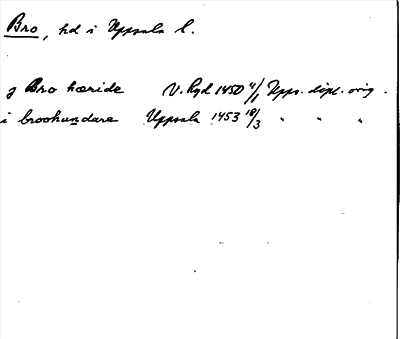 Bro, hd i Uppsala l.
j Bro hæride V. Ryd 1450 4/1 Upps. dipl. orig.
i broohundare Uppsala 1453 18/3 " " "